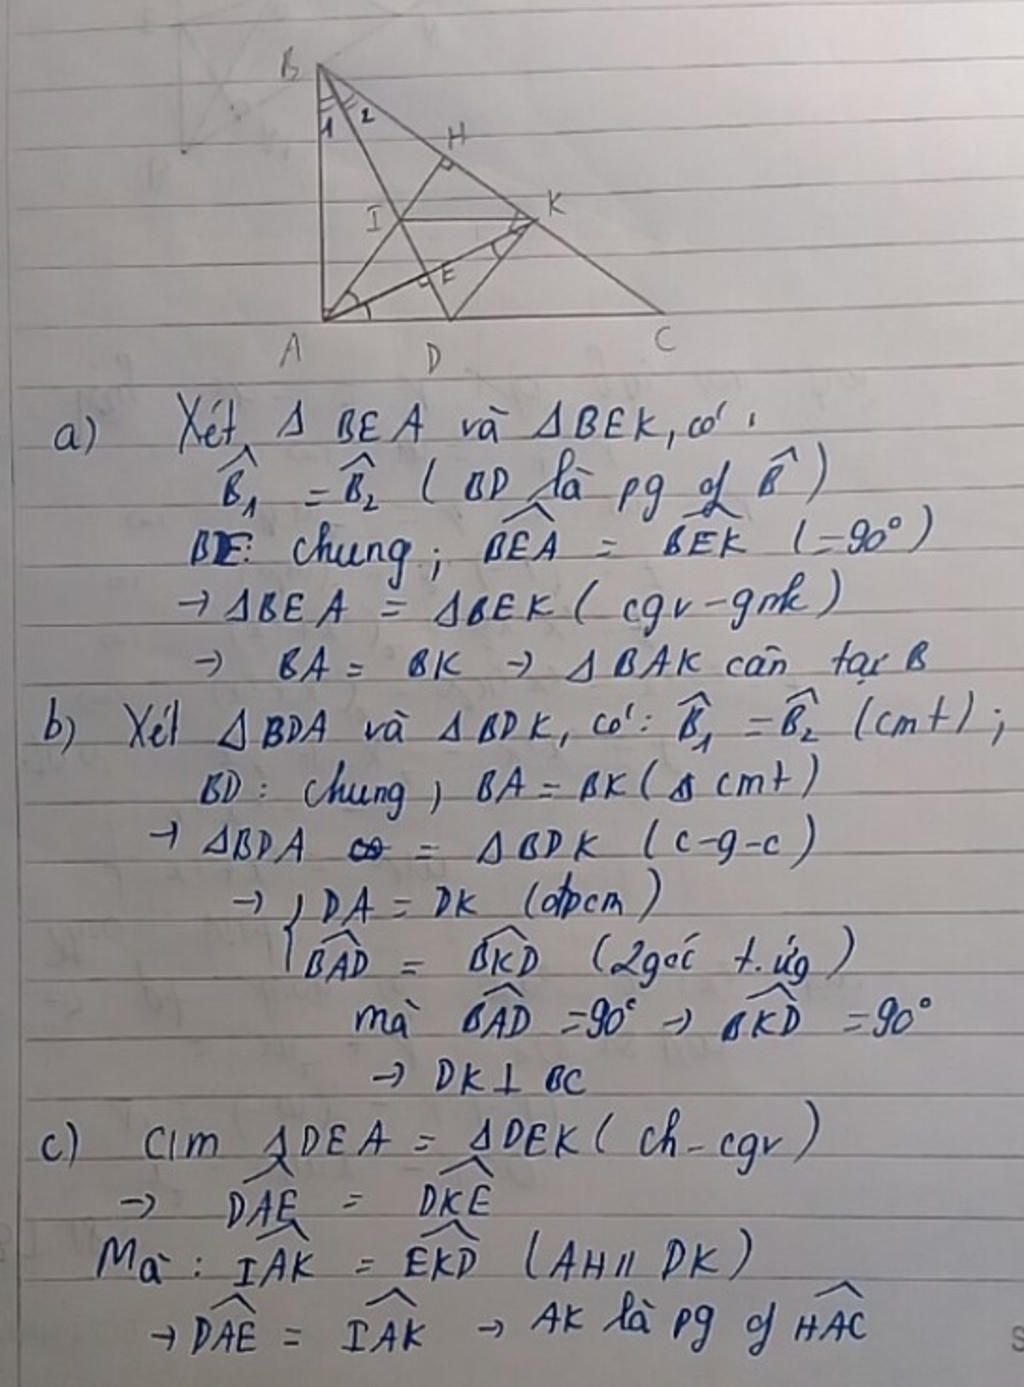 B
1 2
H
I K
E
A D C
a) Xét Δ BEA và ΔBEK, có:
B̂₁ = B̂₂ ( BD là pg of B̂ )
BE: chung ; BEA = BEK (=90°)
→ ΔBEA = ΔBEK ( cgv - gnk )
→ BA = BK → ΔBAK cân tại B
b) Xét ΔBDA và ΔBDK, có: B̂₁ = B̂₂ (cmt) ;
BD : chung ; BA = BK ( Δ cmt)
→ ΔBDA = ΔBDK (c-g-c)
→ { DA = DK (đpcm)
BAD = BKD (2góc t.ứg)
mà BAD = 90° → BKD = 90°
→ DK ⊥ BC
c) C/m ΔDEA = ΔDEK ( ch - cgv )
→ DAE = DKE
Mà : IAK = EKD (AH // DK)
→ DAE = IAK → AK là pg of HAC